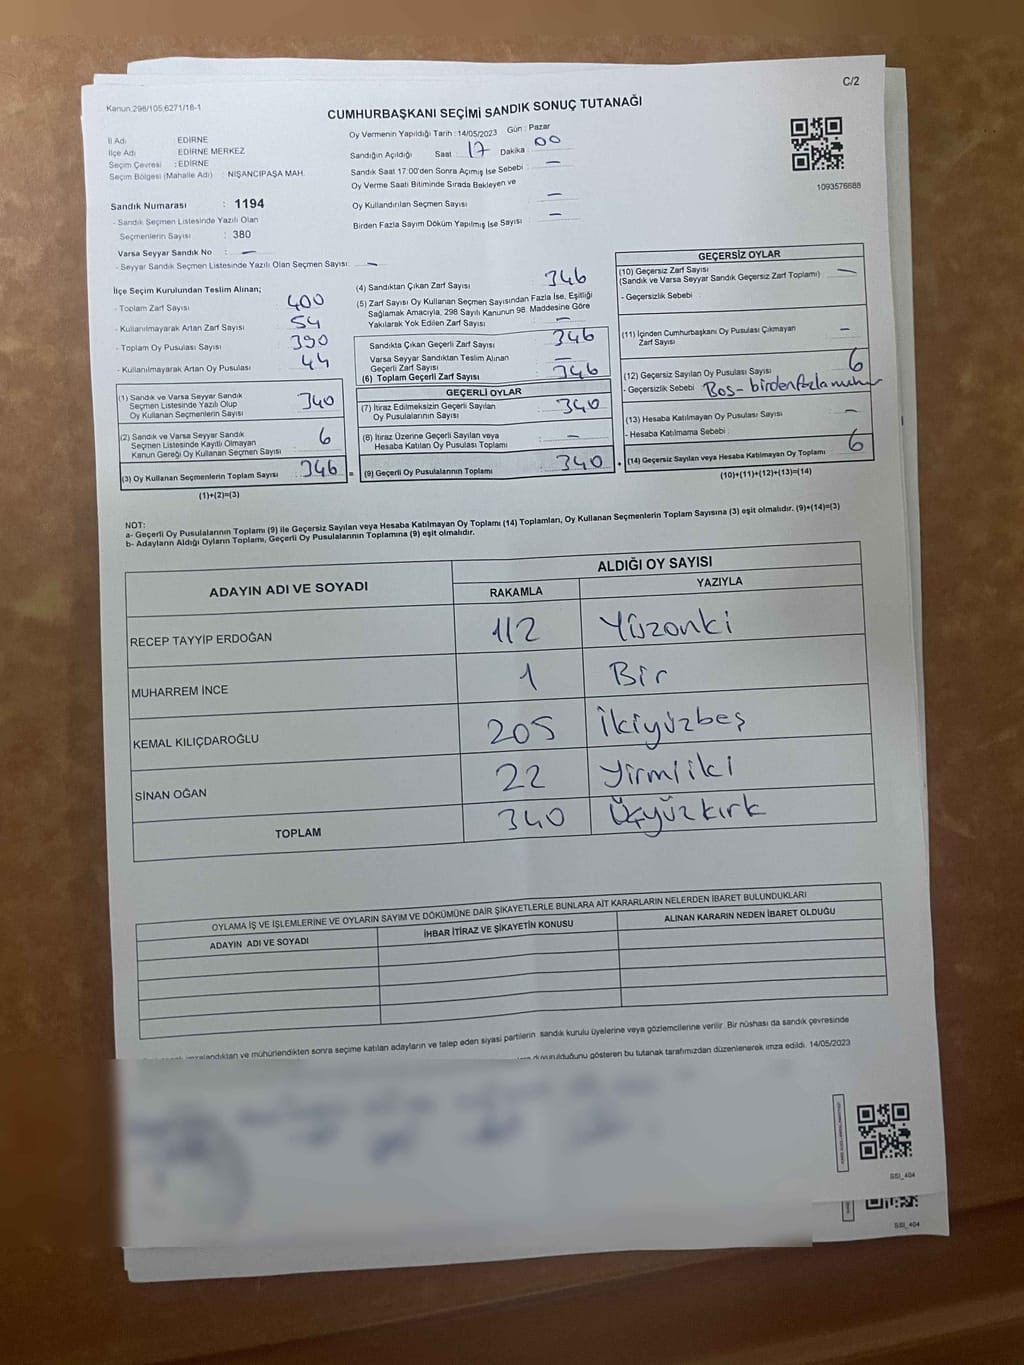 C/2
Kanun:298/105,6271/16-1
CUMHURBAŞKANI SEÇİMİ SANDIK SONUÇ TUTANAĞI
İl Adı : EDİRNE
İlçe Adı : EDİRNE MERKEZ
Seçim Çevresi : EDİRNE
Seçim Bölgesi (Mahalle Adı) : NİŞANCIPAŞA MAH.
Sandık Numarası : 1194
- Sandık Seçmen Listesinde Yazılı Olan
Seçmenlerin Sayısı : 380
Varsa Seyyar Sandık No : —
- Seyyar Sandık Seçmen Listesinde Yazılı Olan Seçmen Sayısı: —
Oy Vermenin Yapıldığı Tarih : 14/05/2023 Gün : Pazar
Sandığın Açıldığı Saat : 17 Dakika : 00
Sandık Saat 17:00'den Sonra Açımış İse Sebebi : —
Oy Verme Saati Bitiminde Sırada Bekleyen ve
Oy Kullandırılan Seçmen Sayısı : —
Birden Fazla Sayım Döküm Yapılmış İse Sayısı : —
1093576688
İlçe Seçim Kurulundan Teslim Alınan;
- Toplam Zarf Sayısı : 400
- Kullanılmayarak Artan Zarf Sayısı : 54
- Toplam Oy Pusulası Sayısı : 390
- Kullanılmayarak Artan Oy Pusulası : 44
(1) Sandık ve Varsa Seyyar Sandık
Seçmen Listesinde Yazılı Olup
Oy Kullanan Seçmenlerin Sayısı : 340
(2) Sandık ve Varsa Seyyar Sandık
Seçmen Listesinde Kayıtlı Olmayan
Kanun Gereği Oy Kullanan Seçmen Sayısı : 6
(3) Oy Kullanan Seçmenlerin Toplam Sayısı : 346 =
(1)+(2)=(3)
(4) Sandıktan Çıkan Zarf Sayısı : 346
(5) Zarf Sayısı Oy Kullanan Seçmen Sayısından Fazla İse, Eşitliği
Sağlamak Amacıyla, 298 Sayılı Kanunun 98. Maddesine Göre
Yakılarak Yok Edilen Zarf Sayısı : —
Sandıkta Çıkan Geçerli Zarf Sayısı : 346
Varsa Seyyar Sandıktan Teslim Alınan
Geçerli Zarf Sayısı : —
(6) Toplam Geçerli Zarf Sayısı : 346
GEÇERLİ OYLAR
(7) İtiraz Edilmeksizin Geçerli Sayılan
Oy Pusulalarının Sayısı : 340
(8) İtiraz Üzerine Geçerli Sayılan veya
Hesaba Katılan Oy Pusulası Toplamı : —
(9) Geçerli Oy Pusulalarının Toplamı : 340 +
GEÇERSİZ OYLAR
(10) Geçersiz Zarf Sayısı
(Sandık ve Varsa Seyyar Sandık Geçersiz Zarf Toplamı) : —
- Geçersizlik Sebebi :
(11) İçinden Cumhurbaşkanı Oy Pusulası Çıkmayan
Zarf Sayısı : —
(12) Geçersiz Sayılan Oy Pusulası Sayısı : 6
- Geçersizlik Sebebi : Boş - birden fazla mühür
(13) Hesaba Katılmayan Oy Pusulası Sayısı : —
- Hesaba Katılmama Sebebi :
(14) Geçersiz Sayılan veya Hesaba Katılmayan Oy Toplamı : 6
(10)+(11)+(12)+(13)=(14)
NOT:
a- Geçerli Oy Pusulalarının Toplamı (9) ile Geçersiz Sayılan veya Hesaba Katılmayan Oy Toplamı (14) Toplamları, Oy Kullanan Seçmenlerin Toplam Sayısına (3) eşit olmalıdır. (9)+(14)=(3)
b- Adayların Aldığı Oyların Toplamı, Geçerli Oy Pusulalarının Toplamına (9) eşit olmalıdır.
ADAYIN ADI VE SOYADI
ALDIĞI OY SAYISI
RAKAMLA YAZIYLA
RECEP TAYYİP ERDOĞAN 112 Yüzonki
MUHARREM İNCE 1 Bir
KEMAL KILIÇDAROĞLU 205 İkiyüzbeş
SİNAN OĞAN 22 yirmiiki
TOPLAM 340 Üçyüzkırk
OYLAMA İŞ VE İŞLEMLERİNE VE OYLARIN SAYIM VE DÖKÜMÜNE DAİR ŞİKAYETLERLE BUNLARA AİT KARARLARIN NELERDEN İBARET BULUNDUKLARI
ADAYIN ADI VE SOYADI İHBAR İTİRAZ VE ŞİKAYETİN KONUSU ALINAN KARARIN NEDEN İBARET OLDUĞU
imzalandıktan ve mühürlendikten sonra seçime katılan adayların ve talep eden siyasi partilerin sandık kurulu üyelerine veya gözlemcilerine verilir. Bir nüshası da sandık çevresinde
duyurulduğunu gösteren bu tutanak tarafımızdan düzenlenerek imza edildi. 14/05/2023
SSI_404
SSI_404